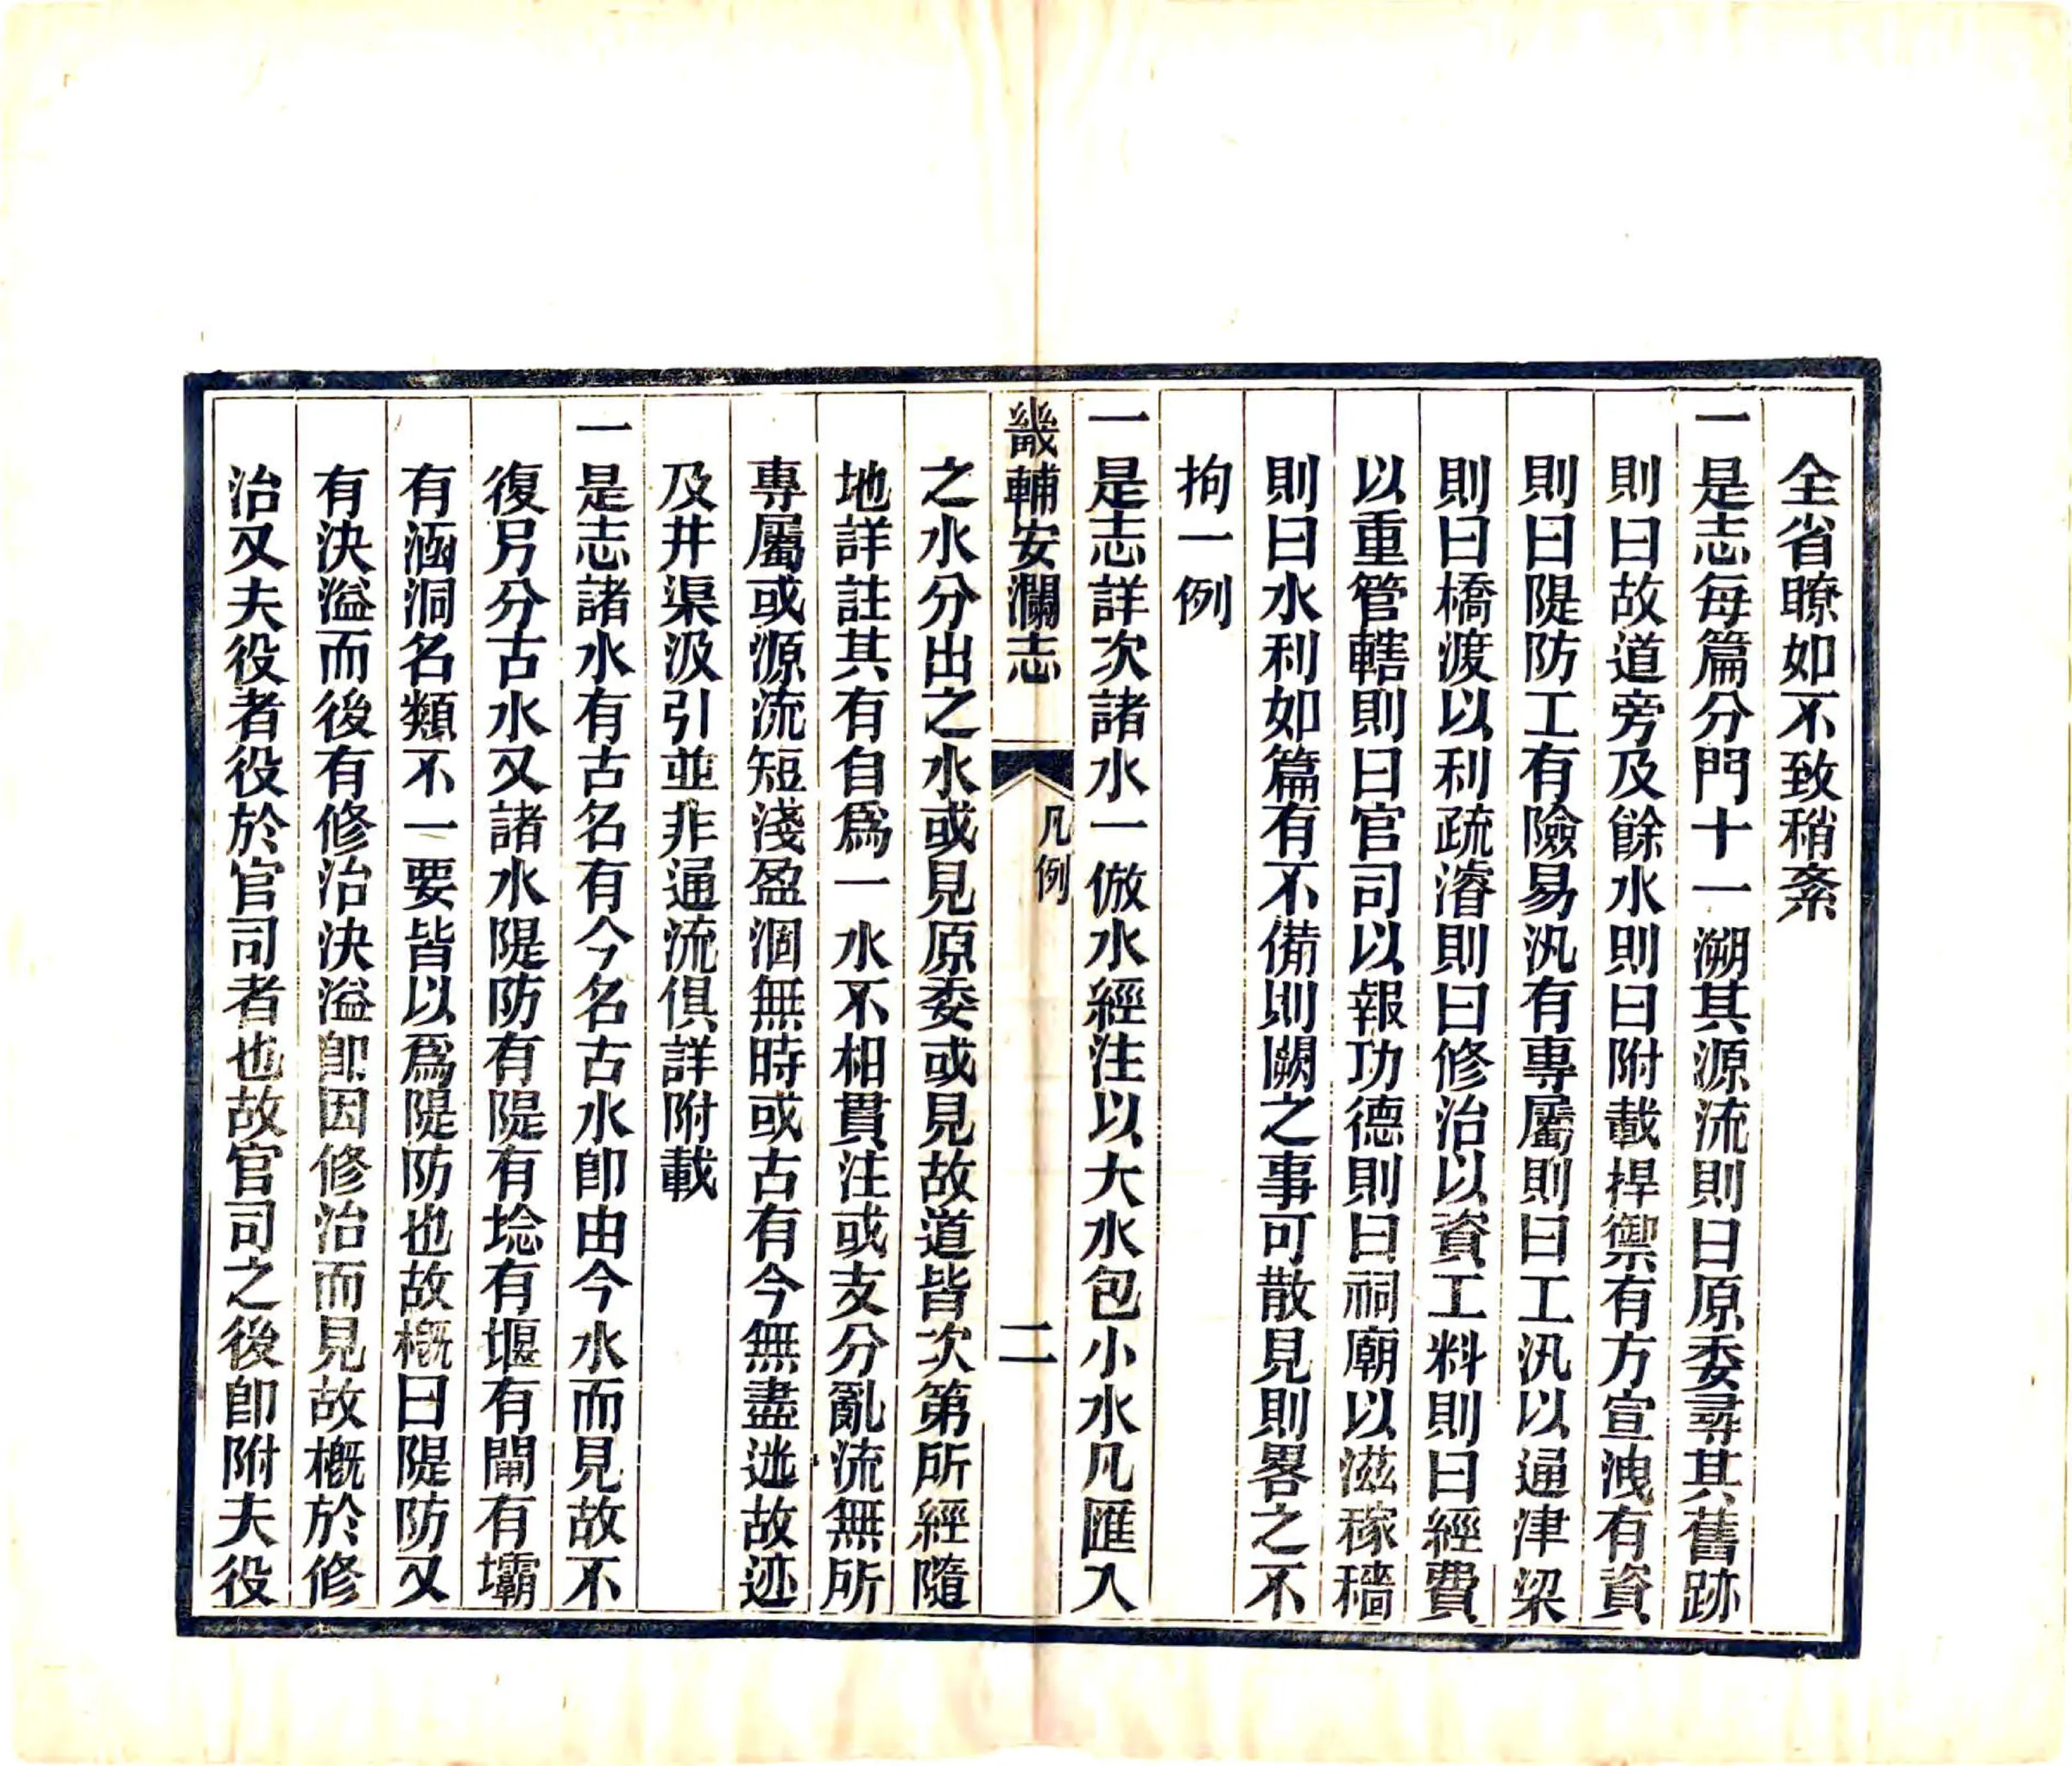 全省暸如不致稍紊
一是志每篇分門十一溯其源流則曰原委尋其舊跡
則曰故道旁及餘水則曰附載捍禦有方宣洩有資
則曰隄防工有險易汛有專屬則曰工汛以通津梁
則曰橋渡以利疏濬則曰修治以資工料則曰經費
以重管轄則曰官司以報功德則曰祠廟以滋稼穡
則曰水利如篇有不備則闕之事可散見則畧之不
拘一例
一是志詳次諸水一倣水經注以大水包小水凡匯入
畿輔安瀾志
凡例
二
之水分出之水或見原委或見故道皆次第所經隨
地詳註其有自爲一水不相貫注或支分亂流無所
專屬或源流短淺盈涸無時或古有今無盡迷故迹
及井渠汲引並非通流俱詳附載
一是志諸水有古名有今名古水卽由今水而見故不
復另分古水又諸水隄防有隄有埝有堰有閘有壩
有涵洞名類不一要皆以爲隄防也故概曰隄防又
有決溢而後有修治決溢卽因修治而見故概於修
治又夫役者役於官司者也故官司之後卽附夫役